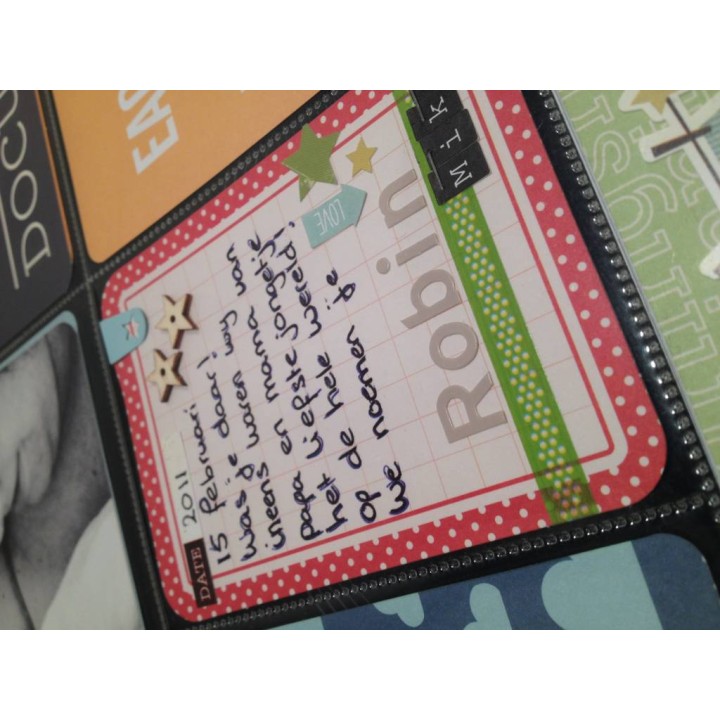 DATE 2011
15 februari
was je daar! wij waren
ineens papa en mama van
het liefste jongetje
op de hele wereld!
we noemen je
LOVE
Robin
Mik
DOCU
EAS